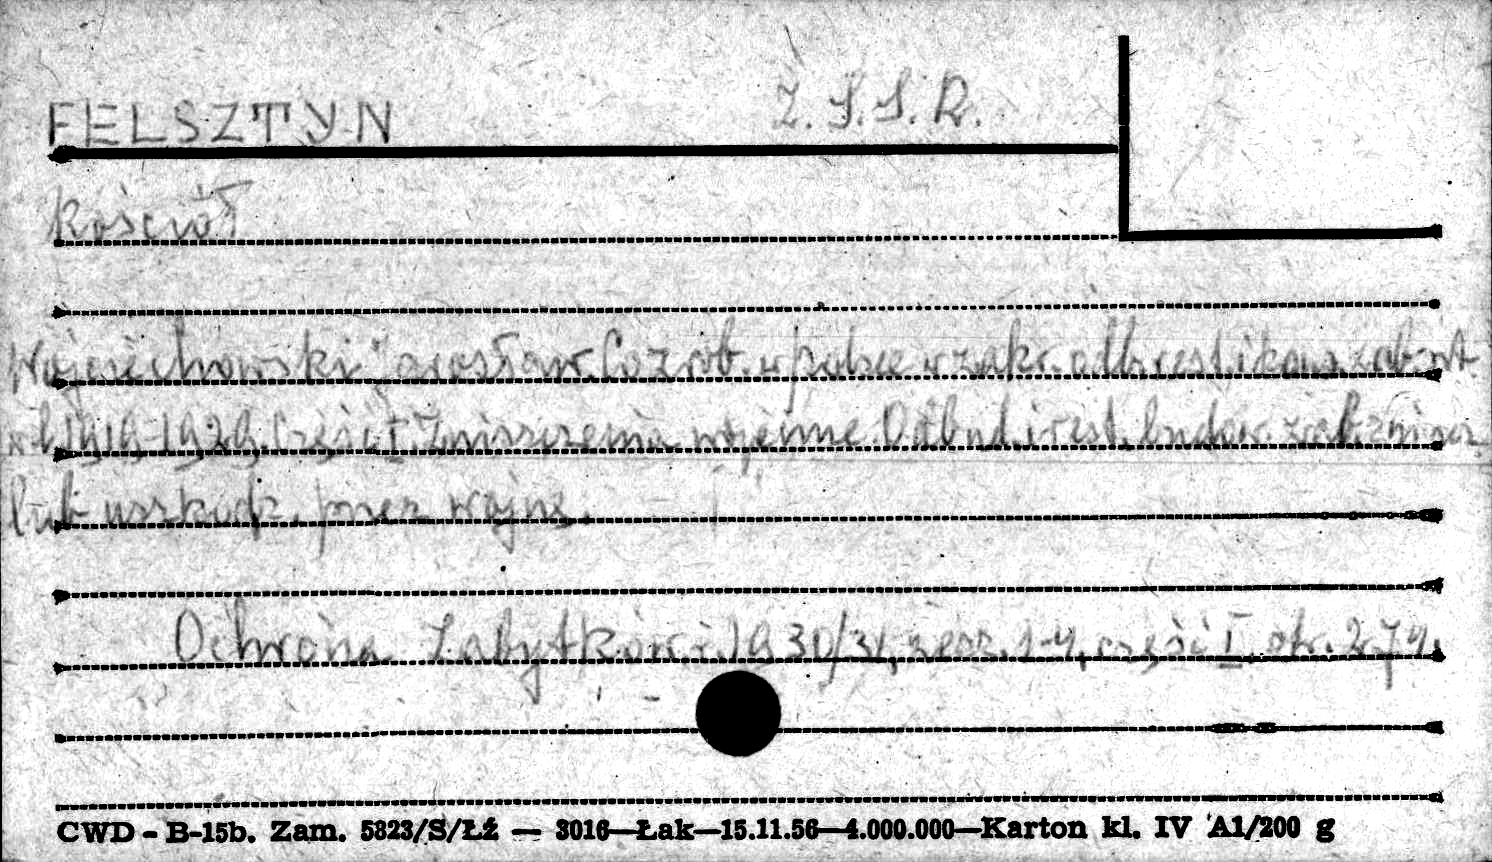 FELSZTYN Z.S.S.R.
Kościół
Wojciechowski Jarosław. Co zrob. w polsce w zakr. odb. rest. i kons. zab. szt.
w l. 1919-1929. Część I. Zniszczenia wojenne. Odbud. i rest. budow. zab. zniszcz.
lub uszkodz. przez wojnę.
Ochrona Zabytków r. 1930/31, zesz. 1-4, część I. str. 274.
CWD - B-15b. Zam. 5823/S/ŁŹ — 3016—Łak—15.11.56—4.000.000—Karton kl. IV A1/200 g